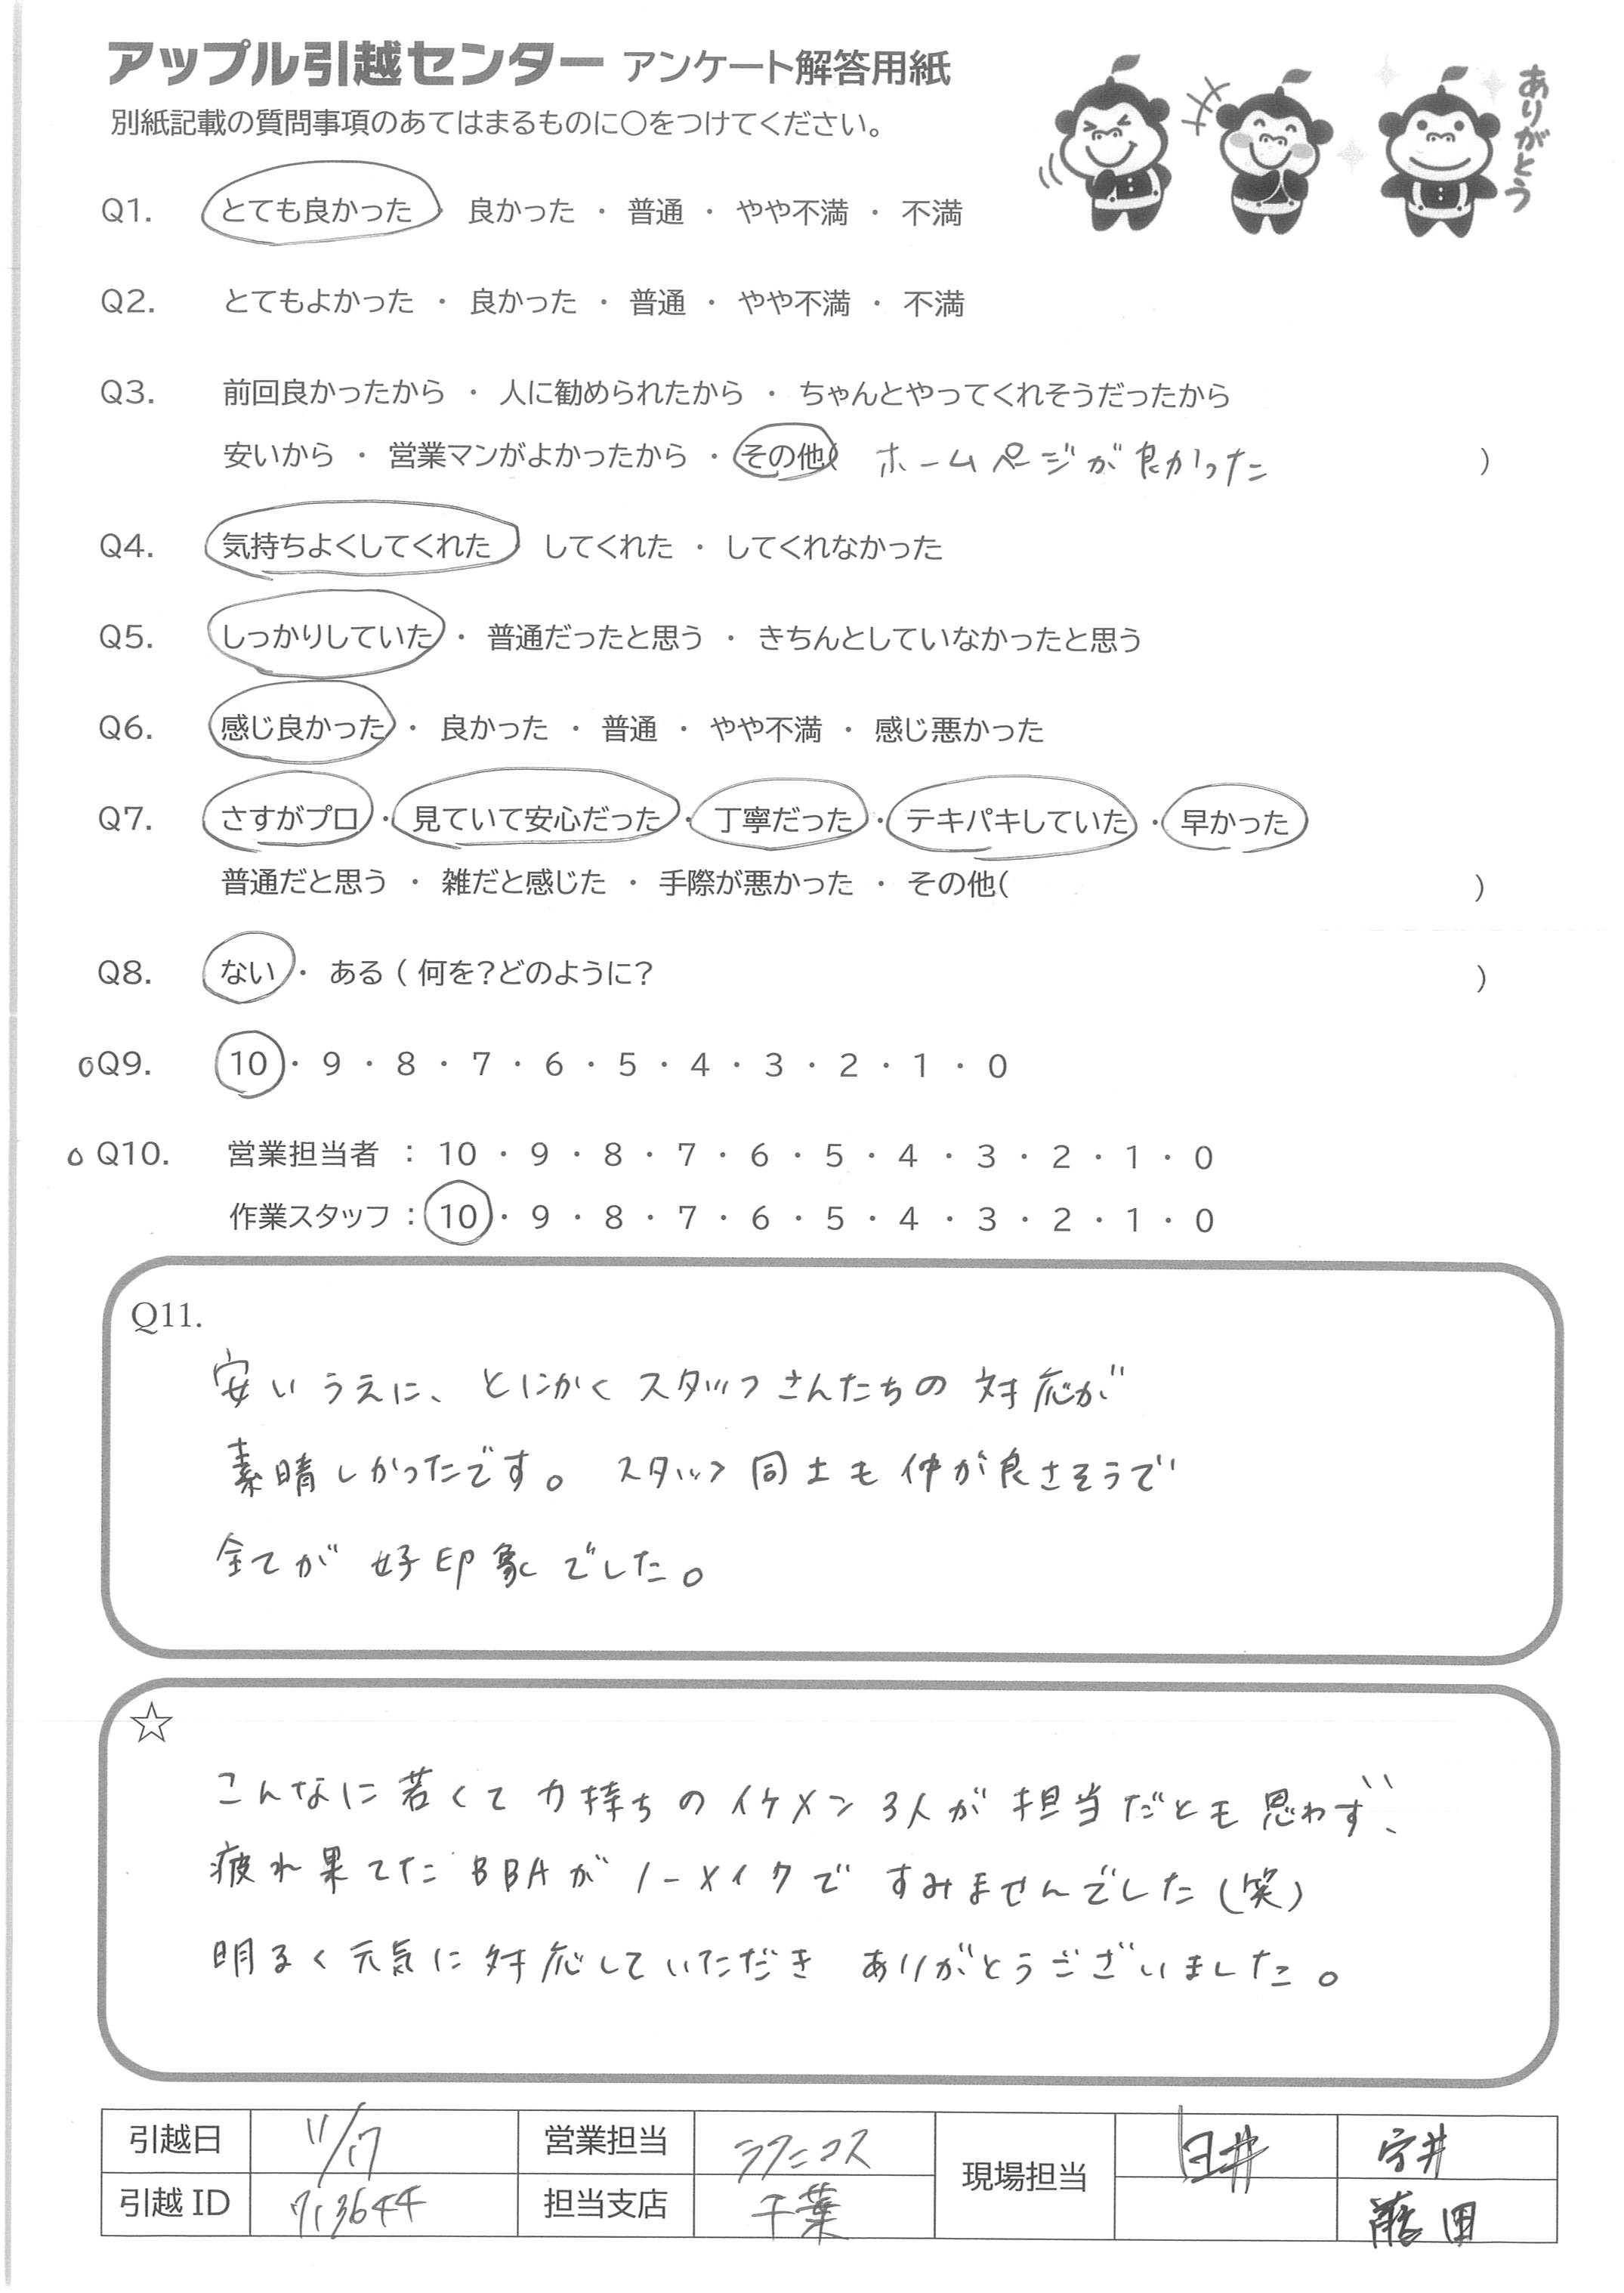 アップル引越センター アンケート解答用紙
別紙記載の質問事項のあてはまるものに○をつけてください。
ありがとう
Q1. とても良かった 良かった ・ 普通 ・ やや不満 ・ 不満
Q2. とてもよかった ・ 良かった ・ 普通 ・ やや不満 ・ 不満
Q3. 前回良かったから ・ 人に勧められたから ・ ちゃんとやってくれそうだったから
安いから ・ 営業マンがよかったから ・ その他( ホームページが良かった )
Q4. 気持ちよくしてくれた してくれた ・ してくれなかった
Q5. しっかりしていた ・ 普通だったと思う ・ きちんとしていなかったと思う
Q6. 感じ良かった ・ 良かった ・ 普通 ・ やや不満 ・ 感じ悪かった
Q7. さすがプロ ・ 見ていて安心だった ・ 丁寧だった ・ テキパキしていた ・ 早かった
普通だと思う ・ 雑だと感じた ・ 手際が悪かった ・ その他( )
Q8. ない ・ ある ( 何を?どのように? )
Q9. 10 ・ 9 ・ 8 ・ 7 ・ 6 ・ 5 ・ 4 ・ 3 ・ 2 ・ 1 ・ 0
Q10. 営業担当者 : 10 ・ 9 ・ 8 ・ 7 ・ 6 ・ 5 ・ 4 ・ 3 ・ 2 ・ 1 ・ 0
作業スタッフ : 10 ・ 9 ・ 8 ・ 7 ・ 6 ・ 5 ・ 4 ・ 3 ・ 2 ・ 1 ・ 0
Q11.
安いうえに、とにかくスタッフさんたちの対応が
素晴しかったです。スタッフ同士も仲が良さそうで
全てが好印象でした。
☆
こんなに若くて力持ちのイケメン3人が担当だとも思わず、
疲れ果てたBBAがノーメイクですみませんでした(笑)
明るく元気に対応していただきありがとうございました。
引越日 11/17 営業担当 ラクニコス 現場担当 臼井 宇井
引越ID 713644 担当支店 千葉